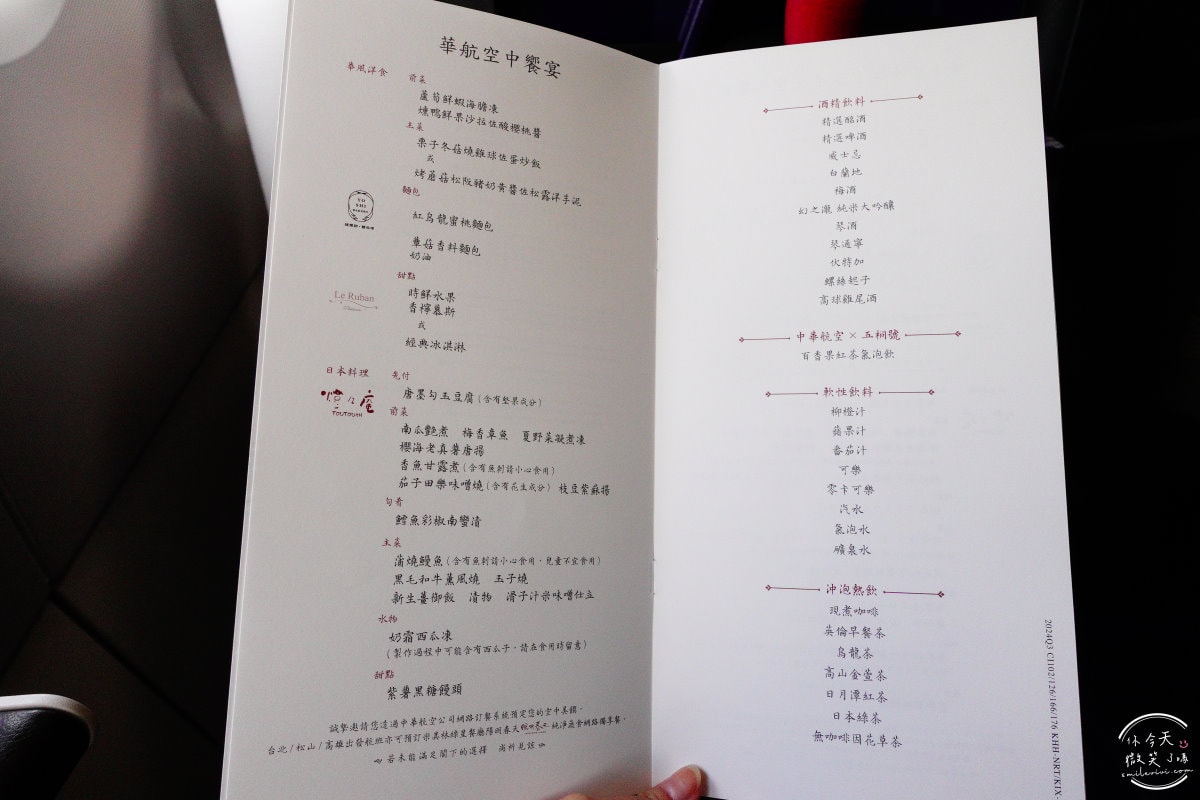 華航空中饗宴
華風洋食
前菜
蘆筍鮮蝦海膽凍
燻鴨鮮果沙拉佐酸櫻桃醬
主菜
栗子冬菇燒雞球佐蛋炒飯
或
烤蘑菇松阪豬奶黃醬佐松露洋芋泥
麵包
YOSHI
BAKERY
紅烏龍蜜桃麵包
蕈菇香料麵包
奶油
甜點
Le Ruban
時鮮水果
香檸慕斯
或
經典冰淇淋
日本料理
TOUTOUAN
先付
唐墨勾玉豆腐(含有堅果成分)
前菜
南瓜艷煮 梅香章魚 夏野菜凝煮凍
櫻海老真薯唐揚
香魚甘露煮(含有魚刺請小心食用)
茄子田樂味噌燒(含有花生成分) 枝豆紫蘇揚
旬肴
鱈魚彩椒南蠻漬
主菜
蒲燒鰻魚(含有魚刺請小心食用,兒童不宜食用)
黑毛和牛薰風燒 玉子燒
新生薑御飯 漬物 滑子汁米味噌仕立
水物
奶霜西瓜凍
(製作過程中可能含有西瓜子,請在食用時留意)
甜點
紫薯黑糖饅頭
誠摯邀請您透過中華航空公司網路訂餐系統預定您的空中美饌,
台北/松山/高雄出發航班亦可預訂米其林綠星餐廳陽明春天 純淨蔬食網路獨享餐,
若未能滿足閣下的選擇 尚祈見諒
酒精飲料
精選酩酒
精選啤酒
威士忌
白蘭地
梅酒
幻之瀧 純米大吟釀
琴酒
琴通寧
伏特加
螺絲起子
高球雞尾酒
中華航空 × 五桐號
百香果紅茶氣泡飲
軟性飲料
柳橙汁
蘋果汁
番茄汁
可樂
零卡可樂
汽水
氣泡水
礦泉水
沖泡熱飲
現煮咖啡
英倫早餐茶
烏龍茶
高山金萱茶
日月潭紅茶
日本綠茶
無咖啡因花草茶
2024Q3 CI102/126/166/176 KHH-NRT/KIX-
你今天
微笑了嗎
smilevivi.com